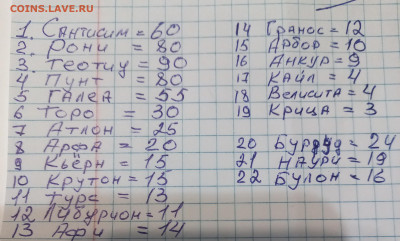 COINS.LAVE.RU
1. Сантисим = 60
2. Рони = 80
3. Теотиу = 90
4 Пунт = 80
5 Галеа = 55
6 Торо = 30
7 Атлон = 25
8 Арфа = 20
9 Кьёрн = 15
10 Крутон = 15
11 Турс = 13
12 Либурнон = 11
13 Афи = 14
14 Гранос = 12
15 Арбор = 10
16 Анкур = 9
17 Кайл = 4
18 Велисита = 4
19 Крица = 3
20 = 24
21 Наири = 19
22 Булон = 16